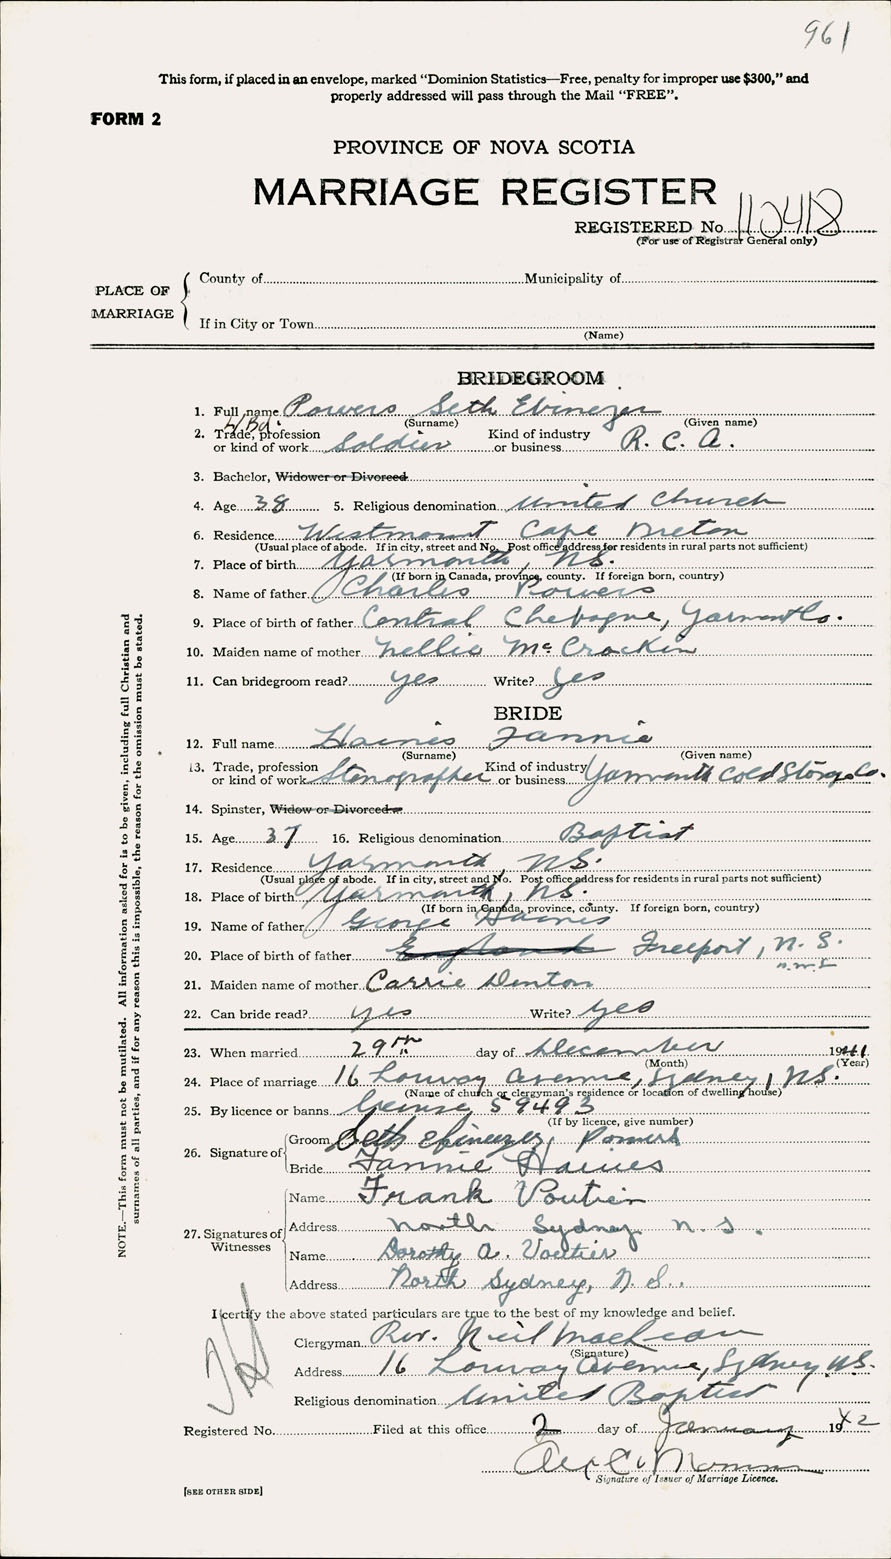 961
This form, if placed in an envelope, marked "Dominion Statistics—Free, penalty for improper use $300," and
properly addressed will pass through the Mail "FREE".
FORM 2
PROVINCE OF NOVA SCOTIA
MARRIAGE REGISTER
REGISTERED No. 110418
(For use of Registrar General only)
PLACE OF MARRIAGE
County of Municipality of
If in City or Town
(Name)
BRIDEGROOM
1. Full name Powers Seth Ebinezer
(Surname) (Given name)
2. Trade, profession or kind of work Soldier Kind of industry or business R. C. A.
3. Bachelor, Widower or Divorced
4. Age 38 5. Religious denomination United Church
6. Residence Westmount Cape Breton
(Usual place of abode. If in city, street and No. Post office address for residents in rural parts not sufficient)
7. Place of birth Yarmouth, N.S.
(If born in Canada, province, county. If foreign born, country)
8. Name of father Charles Powers
9. Place of birth of father Central Chebogue, Yarmouth Co.
10. Maiden name of mother Nellie McCrackin
11. Can bridegroom read? yes Write? yes
BRIDE
12. Full name Haines Fannie
(Surname) (Given name)
13. Trade, profession or kind of work Stenographer Kind of industry or business Yarmouth Cold Storage Co.
14. Spinster, Widow or Divorced
15. Age 37 16. Religious denomination Baptist
17. Residence Yarmouth N.S.
(Usual place of abode. If in city, street and No. Post office address for residents in rural parts not sufficient)
18. Place of birth Yarmouth, N.S.
(If born in Canada, province, county. If foreign born, country)
19. Name of father George Haines
20. Place of birth of father England Freeport, N.S.
21. Maiden name of mother Carrie Denton
22. Can bride read? yes Write? yes
23. When married 29th day of December 1941
(Month) (Year)
24. Place of marriage 16 Lorway Avenue, Sydney, N.S.
(Name of church or clergyman's residence or location of dwelling house)
25. By licence or banns License 59493
(If by licence, give number)
26. Signature of Groom Seth Ebinezer Powers
Bride Fannie Haines
27. Signatures of Witnesses
Name Frank Voutier
Address North Sydney N.S.
Name Dorothy A. Voutier
Address North Sydney, N.S.
I certify the above stated particulars are true to the best of my knowledge and belief.
Clergyman Rev. Neil MacLean
(Signature)
Address 16 Lorway Avenue, Sydney N.S.
Religious denomination United Baptist
Registered No. Filed at this office 2 day of January 1942
Signature of Issuer of Marriage Licence.
[SEE OTHER SIDE]
NOTE.—This form must not be mutilated. All information asked for is to be given, including full Christian and
surnames of all parties, and if for any reason this is impossible, the reason for the omission must be stated.